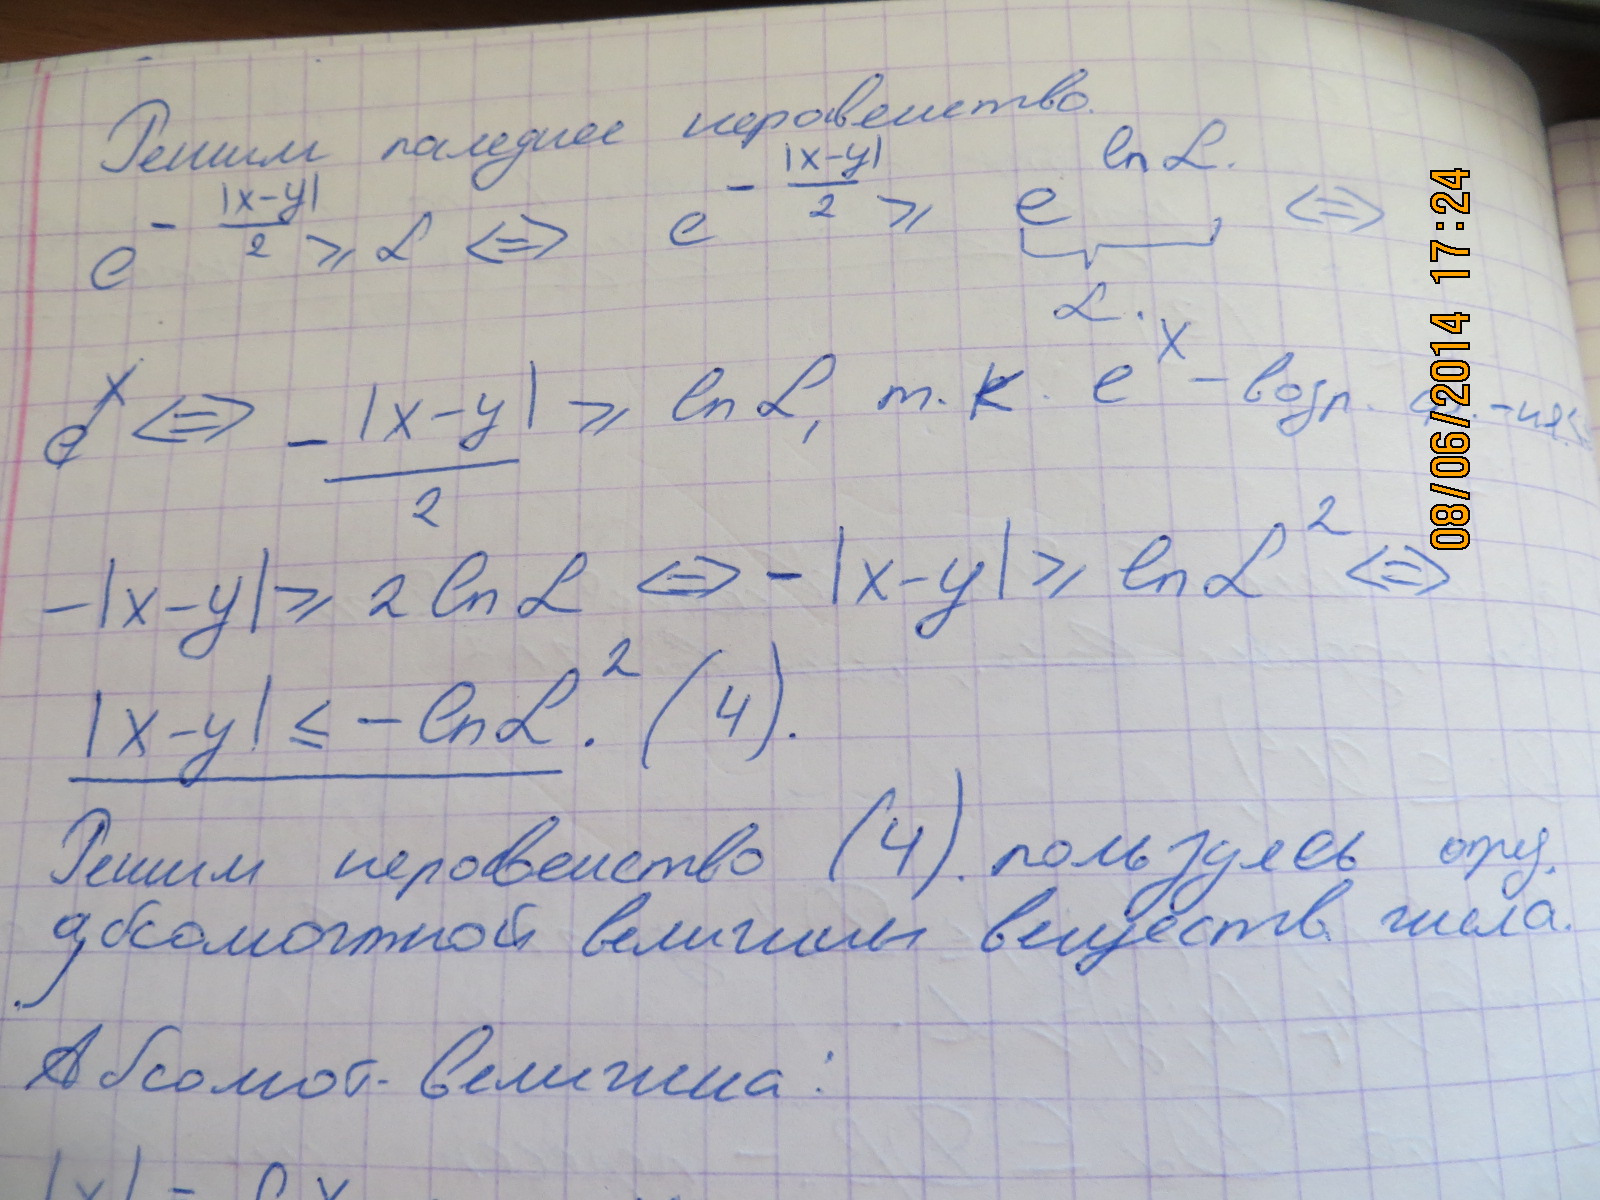 Решим последнее неравенство.
e^{-|x-y|/2} ≥ α ⇔ e^{-|x-y|/2} ≥ e^{ln α.} ⇔
α.
⇔ -|x-y|/2 ≥ ln α, т.к. e^x - возр. ф.-ия
-|x-y| ≥ 2 ln α ⇔ -|x-y| ≥ ln α^2 ⇔
|x-y| ≤ -ln α^2. (4).
Решим неравенство (4). пользуясь опред.
абсолютной величины веществ. числа.
Абсолют. величина:
|x| =
08/06/2014 17:24